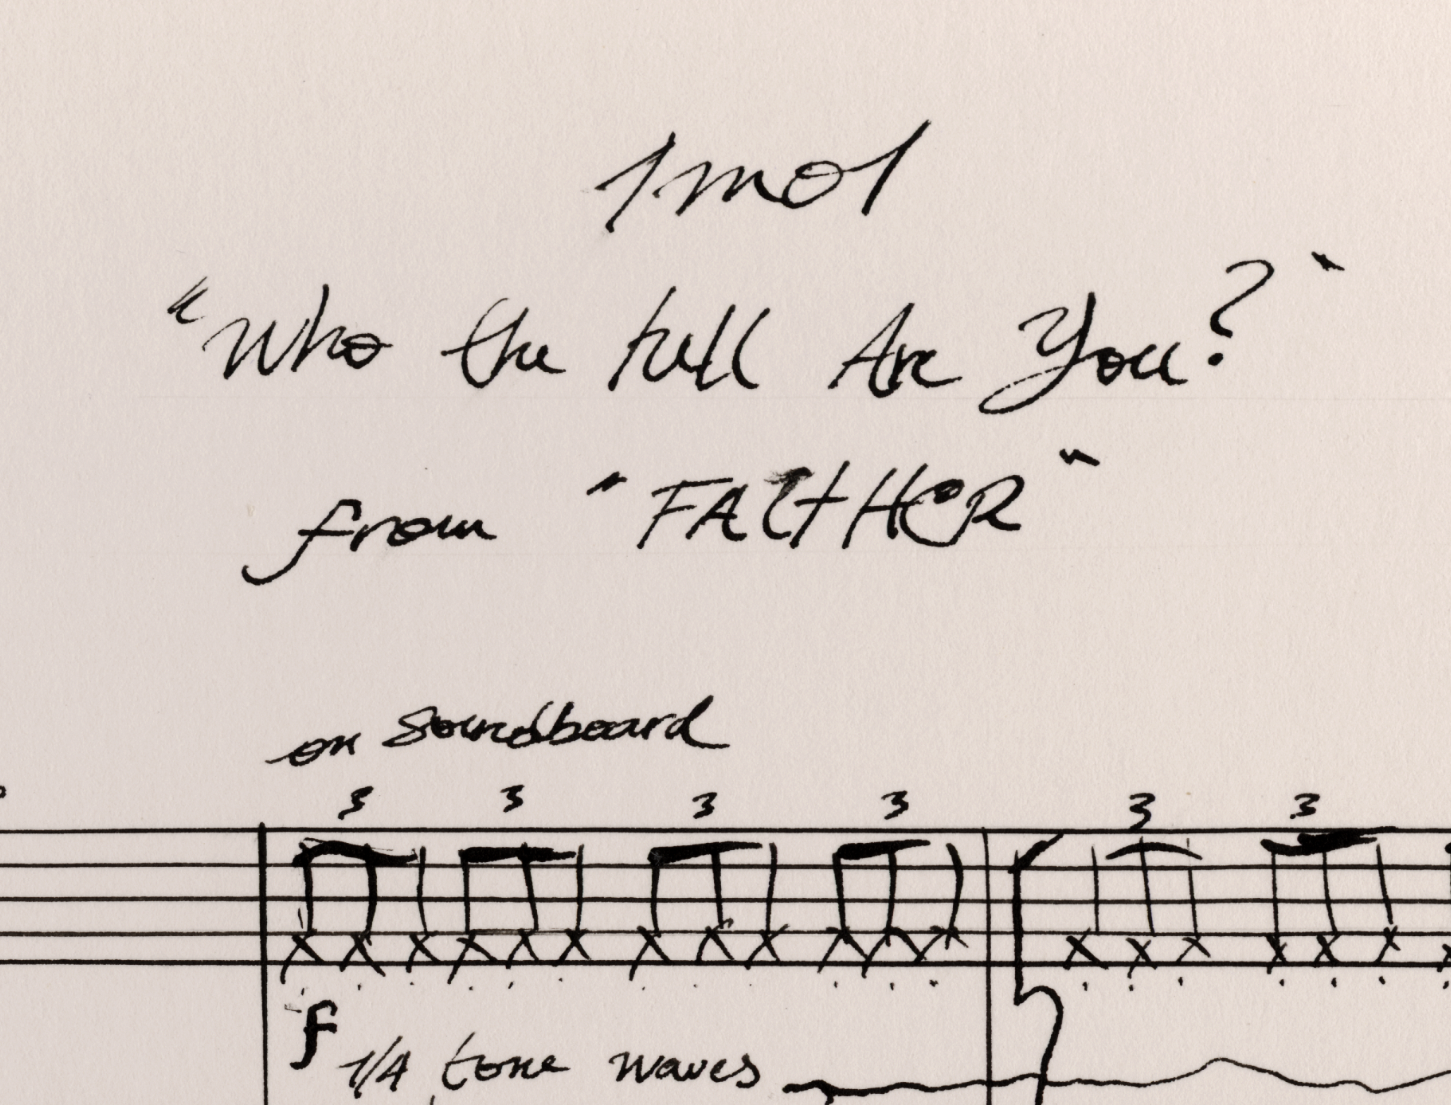 1m01
"Who the Hell Are You?"
from "FATHER"
on Soundboard
3 3 3 3 3 3
f
1/4 tone waves